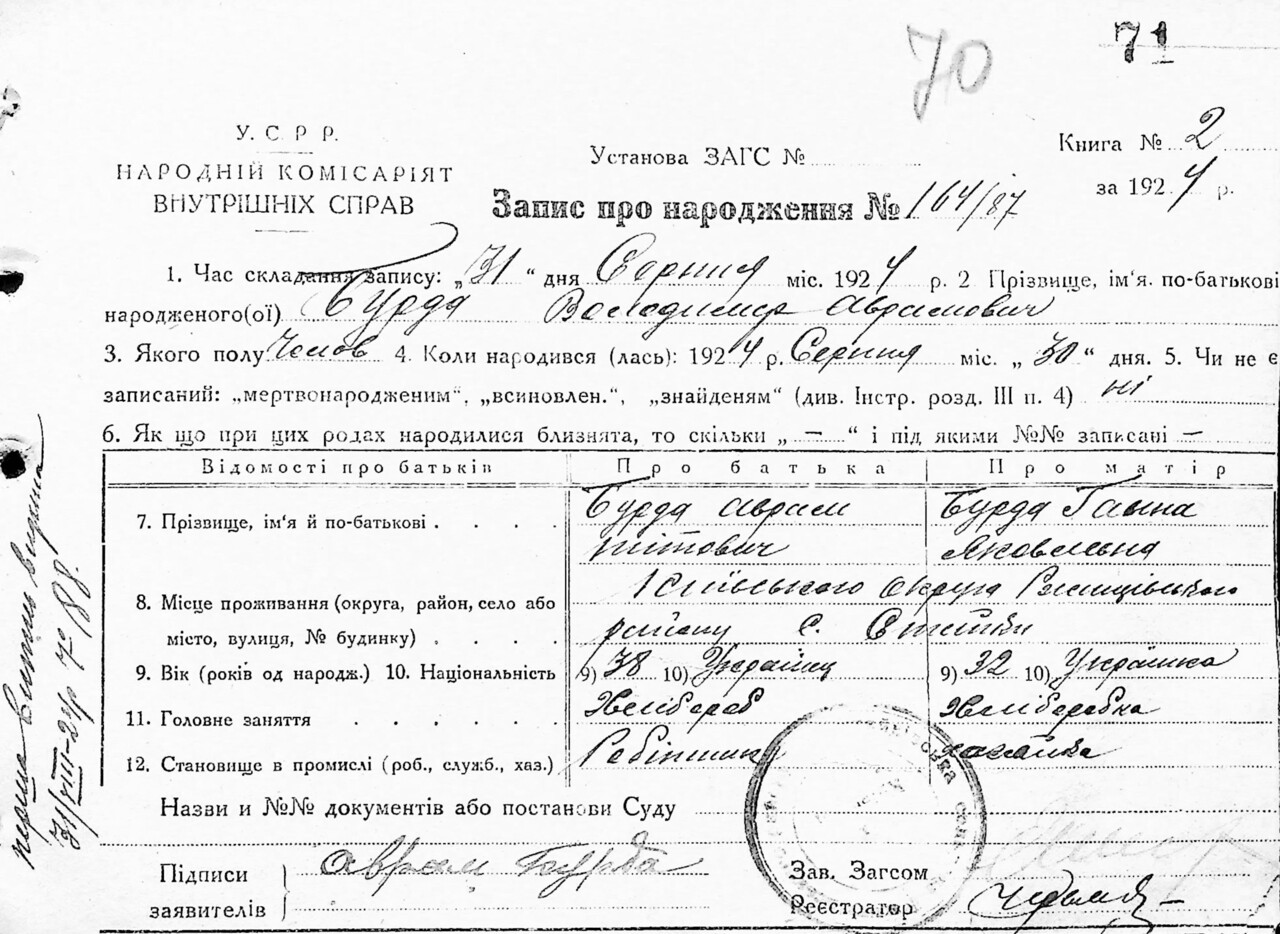 71
70
У. С. Р Р.
НАРОДНІЙ КОМІСАРІЯТ
ВНУТРІШНІХ СПРАВ
Установа ЗАГС №
Книга № 2
за 1924 р.
Запис про народження № 164/87
1. Час складання запису: „31“ дня Серпня міс. 1924 р. 2 Прізвище, ім'я. по-батькові
народженого(ої) Бурда Володимир Аврамович
3. Якого полу Чолов 4. Коли народився (лась): 1924 р. Серпня міс. „30“ дня. 5. Чи не є
записаний: „мертвонародженим“, „всиновлен.“, „знайденям“ (див. Інстр. розд. III п. 4) ні
6. Як що при цих родах народилися близнята, то скільки „—“ і під якими №№ записані —
Відомості про батьків Про батька Про матір
7. Прізвище, ім'я й по-батькові Бурда Аврам Бурда Ганна
Тітович Яковлевна
8. Місце проживання (округа, район, село або Київського округа Ржищівського
місто, вулиця, № будинку) району с.
9. Вік (років од народж.) 10. Національність 9) 38 10) Українец 9) 32 10) Українка
11. Головне заняття Хлібороб Хліборобка
12. Становище в промислі (роб., служб., хаз.)
Назви и №№ документів або постанови Суду
Підписи Аврам Бурда
заявителів
Зав. Загсом
Реєстратор
31/VIII-24р 7º 88.